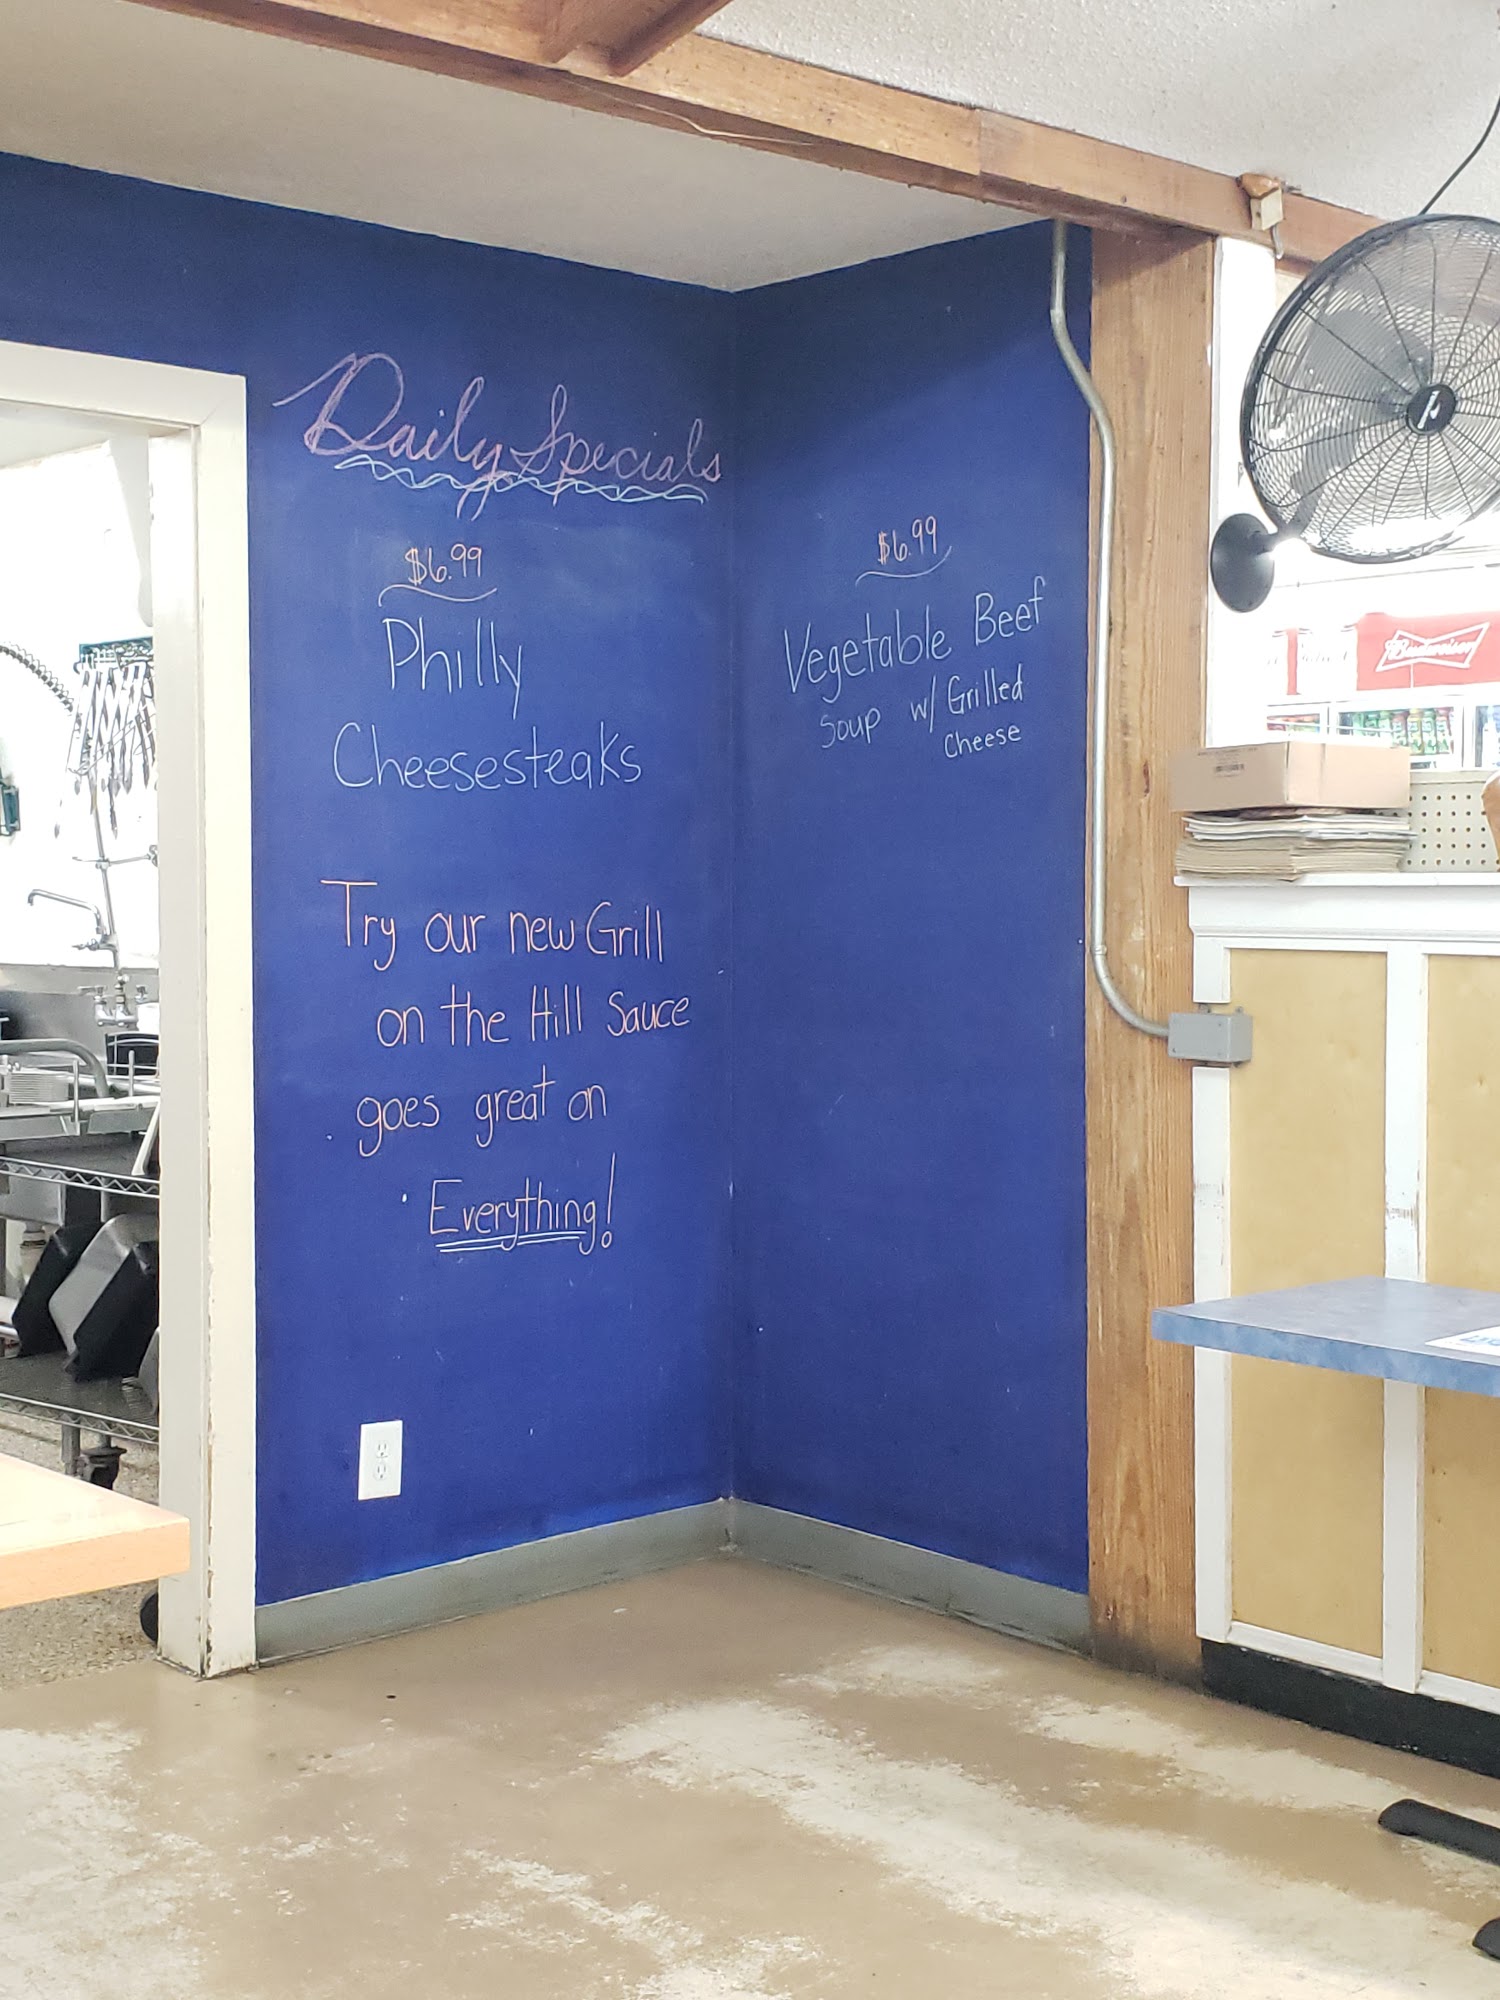 Daily Specials
$6.99
Philly
Cheesesteaks
Try our new Grill
on the Hill Sauce
goes great on
Everything!
$6.99
Vegetable Beef
Soup w/ Grilled
Cheese
Budweiser